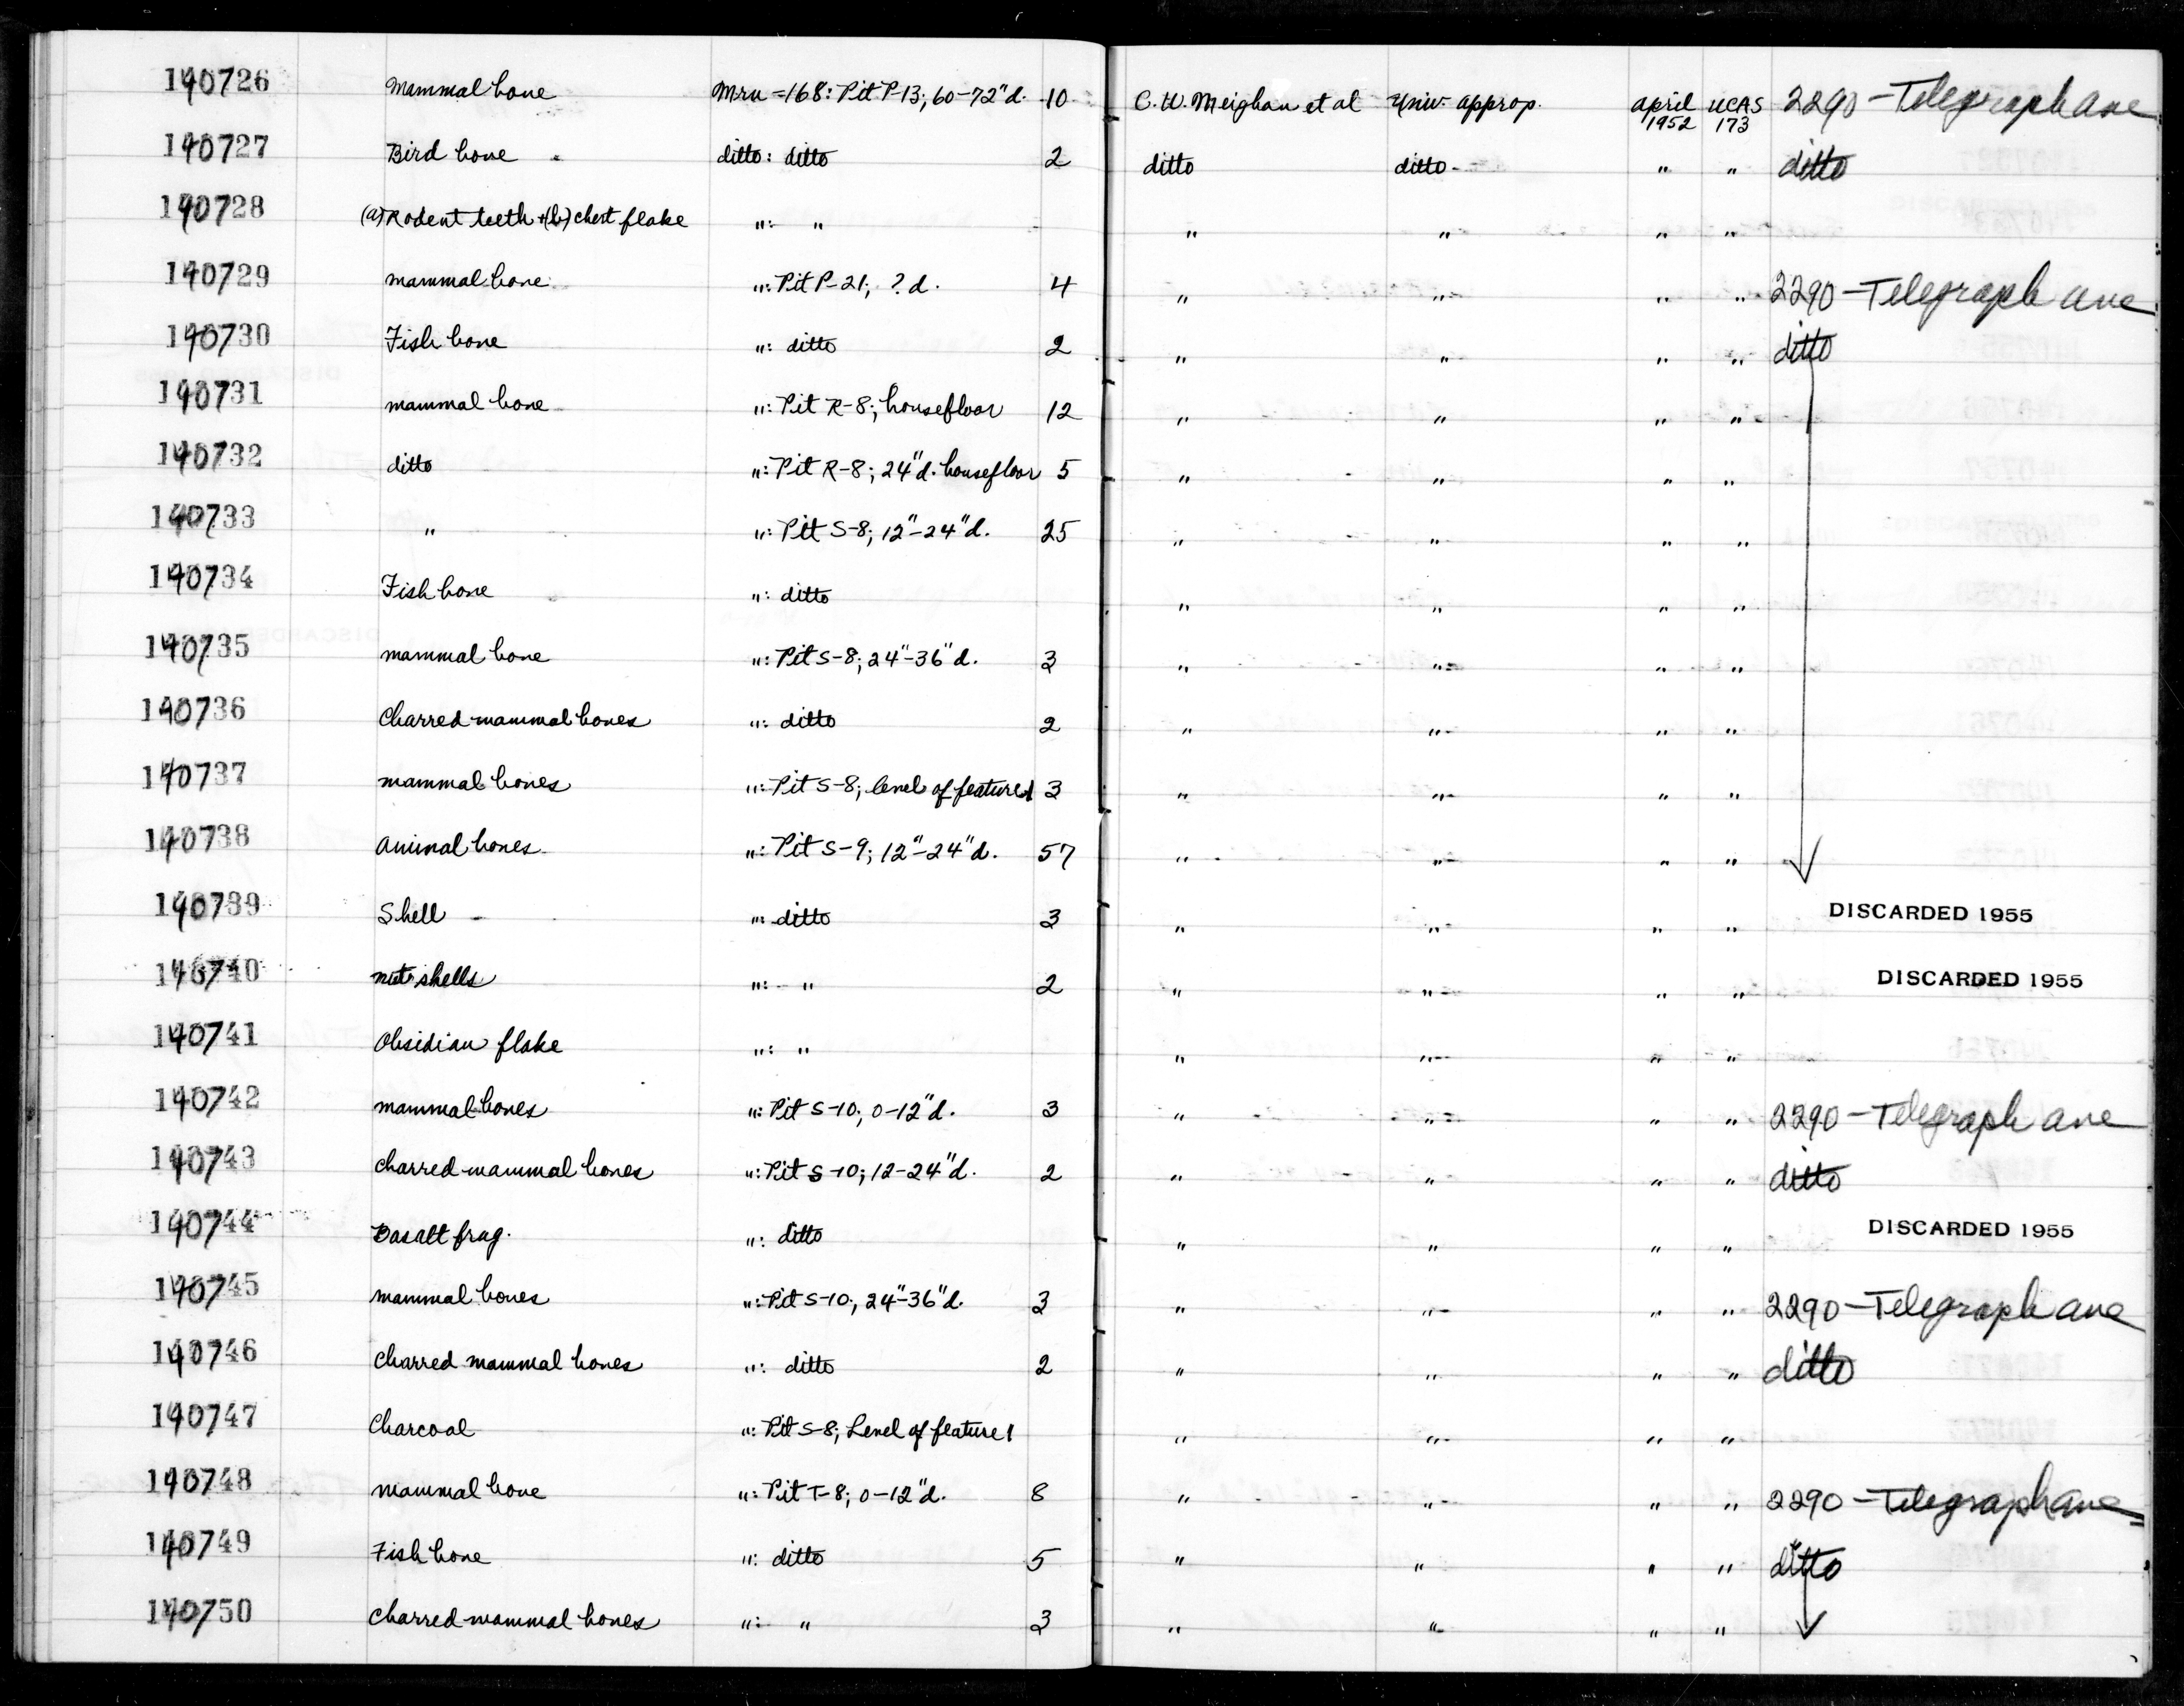 140726 Mammal bone Mrn-168: Pit P-13; 60-72"d. 10 C.W. Meighan et al Univ. approp. April 1952 UCAS 173 2290-Telegraph Ave
140727 Bird bone ditto: ditto 2 ditto ditto " " ditto
140728 (a) Rodent teeth +(b) chert flake ": " " " " "
140729 mammal bone ": Pit P-21; ? d. 4 " " " " 2290-Telegraph Ave
140730 Fish bone ": ditto 2 " " " " ditto
140731 mammal bone ": Pit R-8; housefloor 12 " " " "
140732 ditto ": Pit R-8; 24"d. housefloor 5 " " " "
140733 " ": Pit S-8; 12"-24"d. 25 " " " "
140734 Fish bone ": ditto " " " "
140735 mammal bone ": Pit S-8; 24"-36"d. 3 " " " "
140736 Charred mammal bones ": ditto 2 " " " "
140737 mammal bones ": Pit S-8; level of feature 1 3 " " " "
140738 Animal bones ": Pit S-9; 12"-24"d. 57 " " " "
140739 Shell ": ditto 3 " " " " DISCARDED 1955
140740 nut shells ": " 2 " " " " DISCARDED 1955
140741 Obsidian flake ": " " " " "
140742 mammal bones ": Pit S-10; 0-12"d. 3 " " " " 2290-Telegraph Ave
140743 Charred mammal bones ": Pit S-10; 12-24"d. 2 " " " " ditto
140744 Basalt frag. ": ditto " " " " DISCARDED 1955
140745 mammal bones ": Pit S-10; 24"-36"d. 3 " " " " 2290-Telegraph Ave
140746 Charred mammal bones ": ditto 2 " " " " ditto
140747 Charcoal ": Pit S-8; Level of feature 1 " " " "
140748 mammal bone ": Pit T-8; 0-12"d. 8 " " " " 2290-Telegraph Ave
140749 Fish bone ": ditto 5 " " " " ditto
140750 Charred mammal bones ": " 3 " " " "